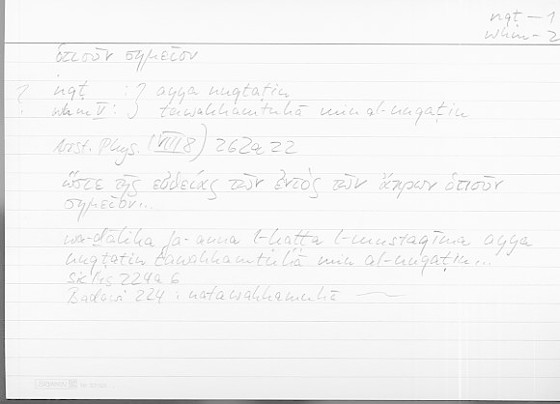 nqṭ – 1
whm – 2
ὁτιοῦν σημεῖον
? nqṭ : } ayya nuqṭatin
? whm V : } tawahhamtuhā min al-nuqaṭin
Arist. Phys. (VIII 8) 262a22
ὥστε τῆς εὐθείας τῶν ἐντὸς τῶν ἄκρων ὁτιοῦν
σημεῖον...
wa-ḏālika fa-anna l-ḫaṭṭa l-mustaqīma ayya
nuqṭatin tawahhamtuhā min al-nuqaṭin...
Sic Hs 224a6
Badawi 224 : natawahhamuhā